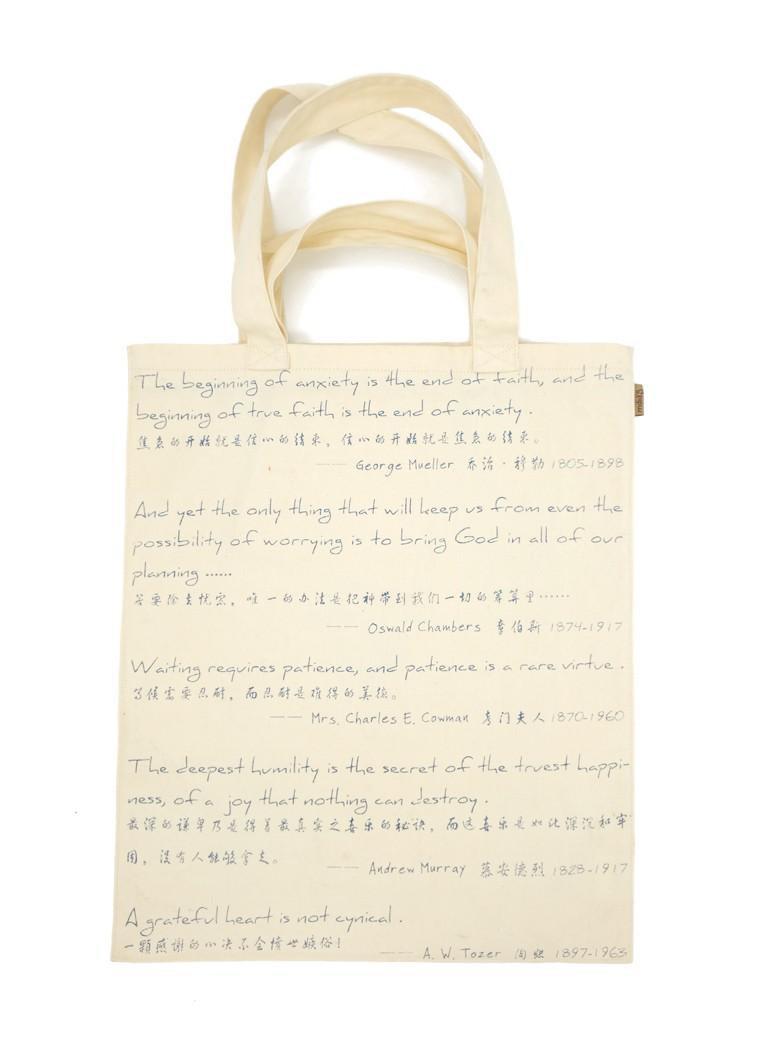 The beginning of anxiety is the end of faith, and the
beginning of true faith is the end of anxiety.
焦虑的开始就是信心的结束，信心的开始就是焦虑的结束。
—— George Mueller 乔治·穆勒 1805-1898
And yet the only thing that will keep us from even the
possibility of worrying is to bring God in all of our
planning ......
若要除去忧虑，唯一的办法是把神带到我们一切的筹算里……
—— Oswald Chambers 章伯斯 1874-1917
Waiting requires patience, and patience is a rare virtue.
等候需要忍耐，而忍耐是难得的美德。
—— Mrs. Charles E. Cowman 考门夫人 1870-1960
The deepest humility is the secret of the truest happi-
ness, of a joy that nothing can destroy.
最深的谦卑乃是得着最真实之喜乐的秘诀，而这喜乐是如此深沉和牢
固，没有人能够拿走。
—— Andrew Murray 慕安德烈 1828-1917
A grateful heart is not cynical.
一颗感谢的心决不会愤世嫉俗！
—— A. W. Tozer 陶恕 1897-1963